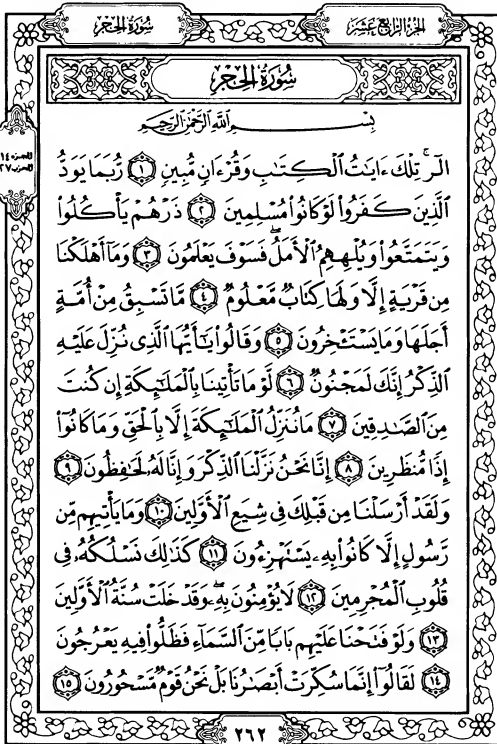 سُورَةُ الحِجْرِ
الجُزْءُ الرَّابِعَ عَشَرَ
سُورَةُ الحِجْرِ
بِسْمِ اللَّهِ الرَّحْمَٰنِ الرَّحِيمِ
الجزء ١٤
الحزب ٢٧
الٓرۚ تِلْكَ ءَايَٰتُ ٱلْكِتَٰبِ وَقُرْءَانٍ مُّبِينٍ ١ رُّبَمَا يَوَدُّ
ٱلَّذِينَ كَفَرُوا۟ لَوْ كَانُوا۟ مُسْلِمِينَ ٢ ذَرْهُمْ يَأْكُلُوا۟
وَيَتَمَتَّعُوا۟ وَيُلْهِهِمُ ٱلْأَمَلُ ۖ فَسَوْفَ يَعْلَمُونَ ٣ وَمَآ أَهْلَكْنَا
مِن قَرْيَةٍ إِلَّا وَلَهَا كِتَابٌ مَّعْلُومٌ ٤ مَّا تَسْبِقُ مِنْ أُمَّةٍ
أَجَلَهَا وَمَا يَسْتَـْٔخِرُونَ ٥ وَقَالُوا۟ يَٰٓأَيُّهَا ٱلَّذِى نُزِّلَ عَلَيْهِ
ٱلذِّكْرُ إِنَّكَ لَمَجْنُونٌ ٦ لَّوْ مَا تَأْتِينَا بِٱلْمَلَٰٓئِكَةِ إِن كُنتَ
مِنَ ٱلصَّٰدِقِينَ ٧ مَا نُنَزِّلُ ٱلْمَلَٰٓئِكَةَ إِلَّا بِٱلْحَقِّ وَمَا كَانُوٓا۟
إِذًا مُّنظَرِينَ ٨ إِنَّا نَحْنُ نَزَّلْنَا ٱلذِّكْرَ وَإِنَّا لَهُۥ لَحَٰفِظُونَ ٩
وَلَقَدْ أَرْسَلْنَا مِن قَبْلِكَ فِى شِيَعِ ٱلْأَوَّلِينَ ١٠ وَمَا يَأْتِيهِم مِّن
رَّسُولٍ إِلَّا كَانُوا۟ بِهِۦ يَسْتَهْزِءُونَ ١١ كَذَٰلِكَ نَسْلُكُهُۥ فِى
قُلُوبِ ٱلْمُجْرِمِينَ ١٢ لَا يُؤْمِنُونَ بِهِۦ ۖ وَقَدْ خَلَتْ سُنَّةُ ٱلْأَوَّلِينَ
١٣ وَلَوْ فَتَحْنَا عَلَيْهِم بَابًا مِّنَ ٱلسَّمَآءِ فَظَلُّوا۟ فِيهِ يَعْرُجُونَ
١٤ لَقَالُوٓا۟ إِنَّمَا سُكِّرَتْ أَبْصَٰرُنَا بَلْ نَحْنُ قَوْمٌ مَّسْحُورُونَ ١٥
٢٦٢